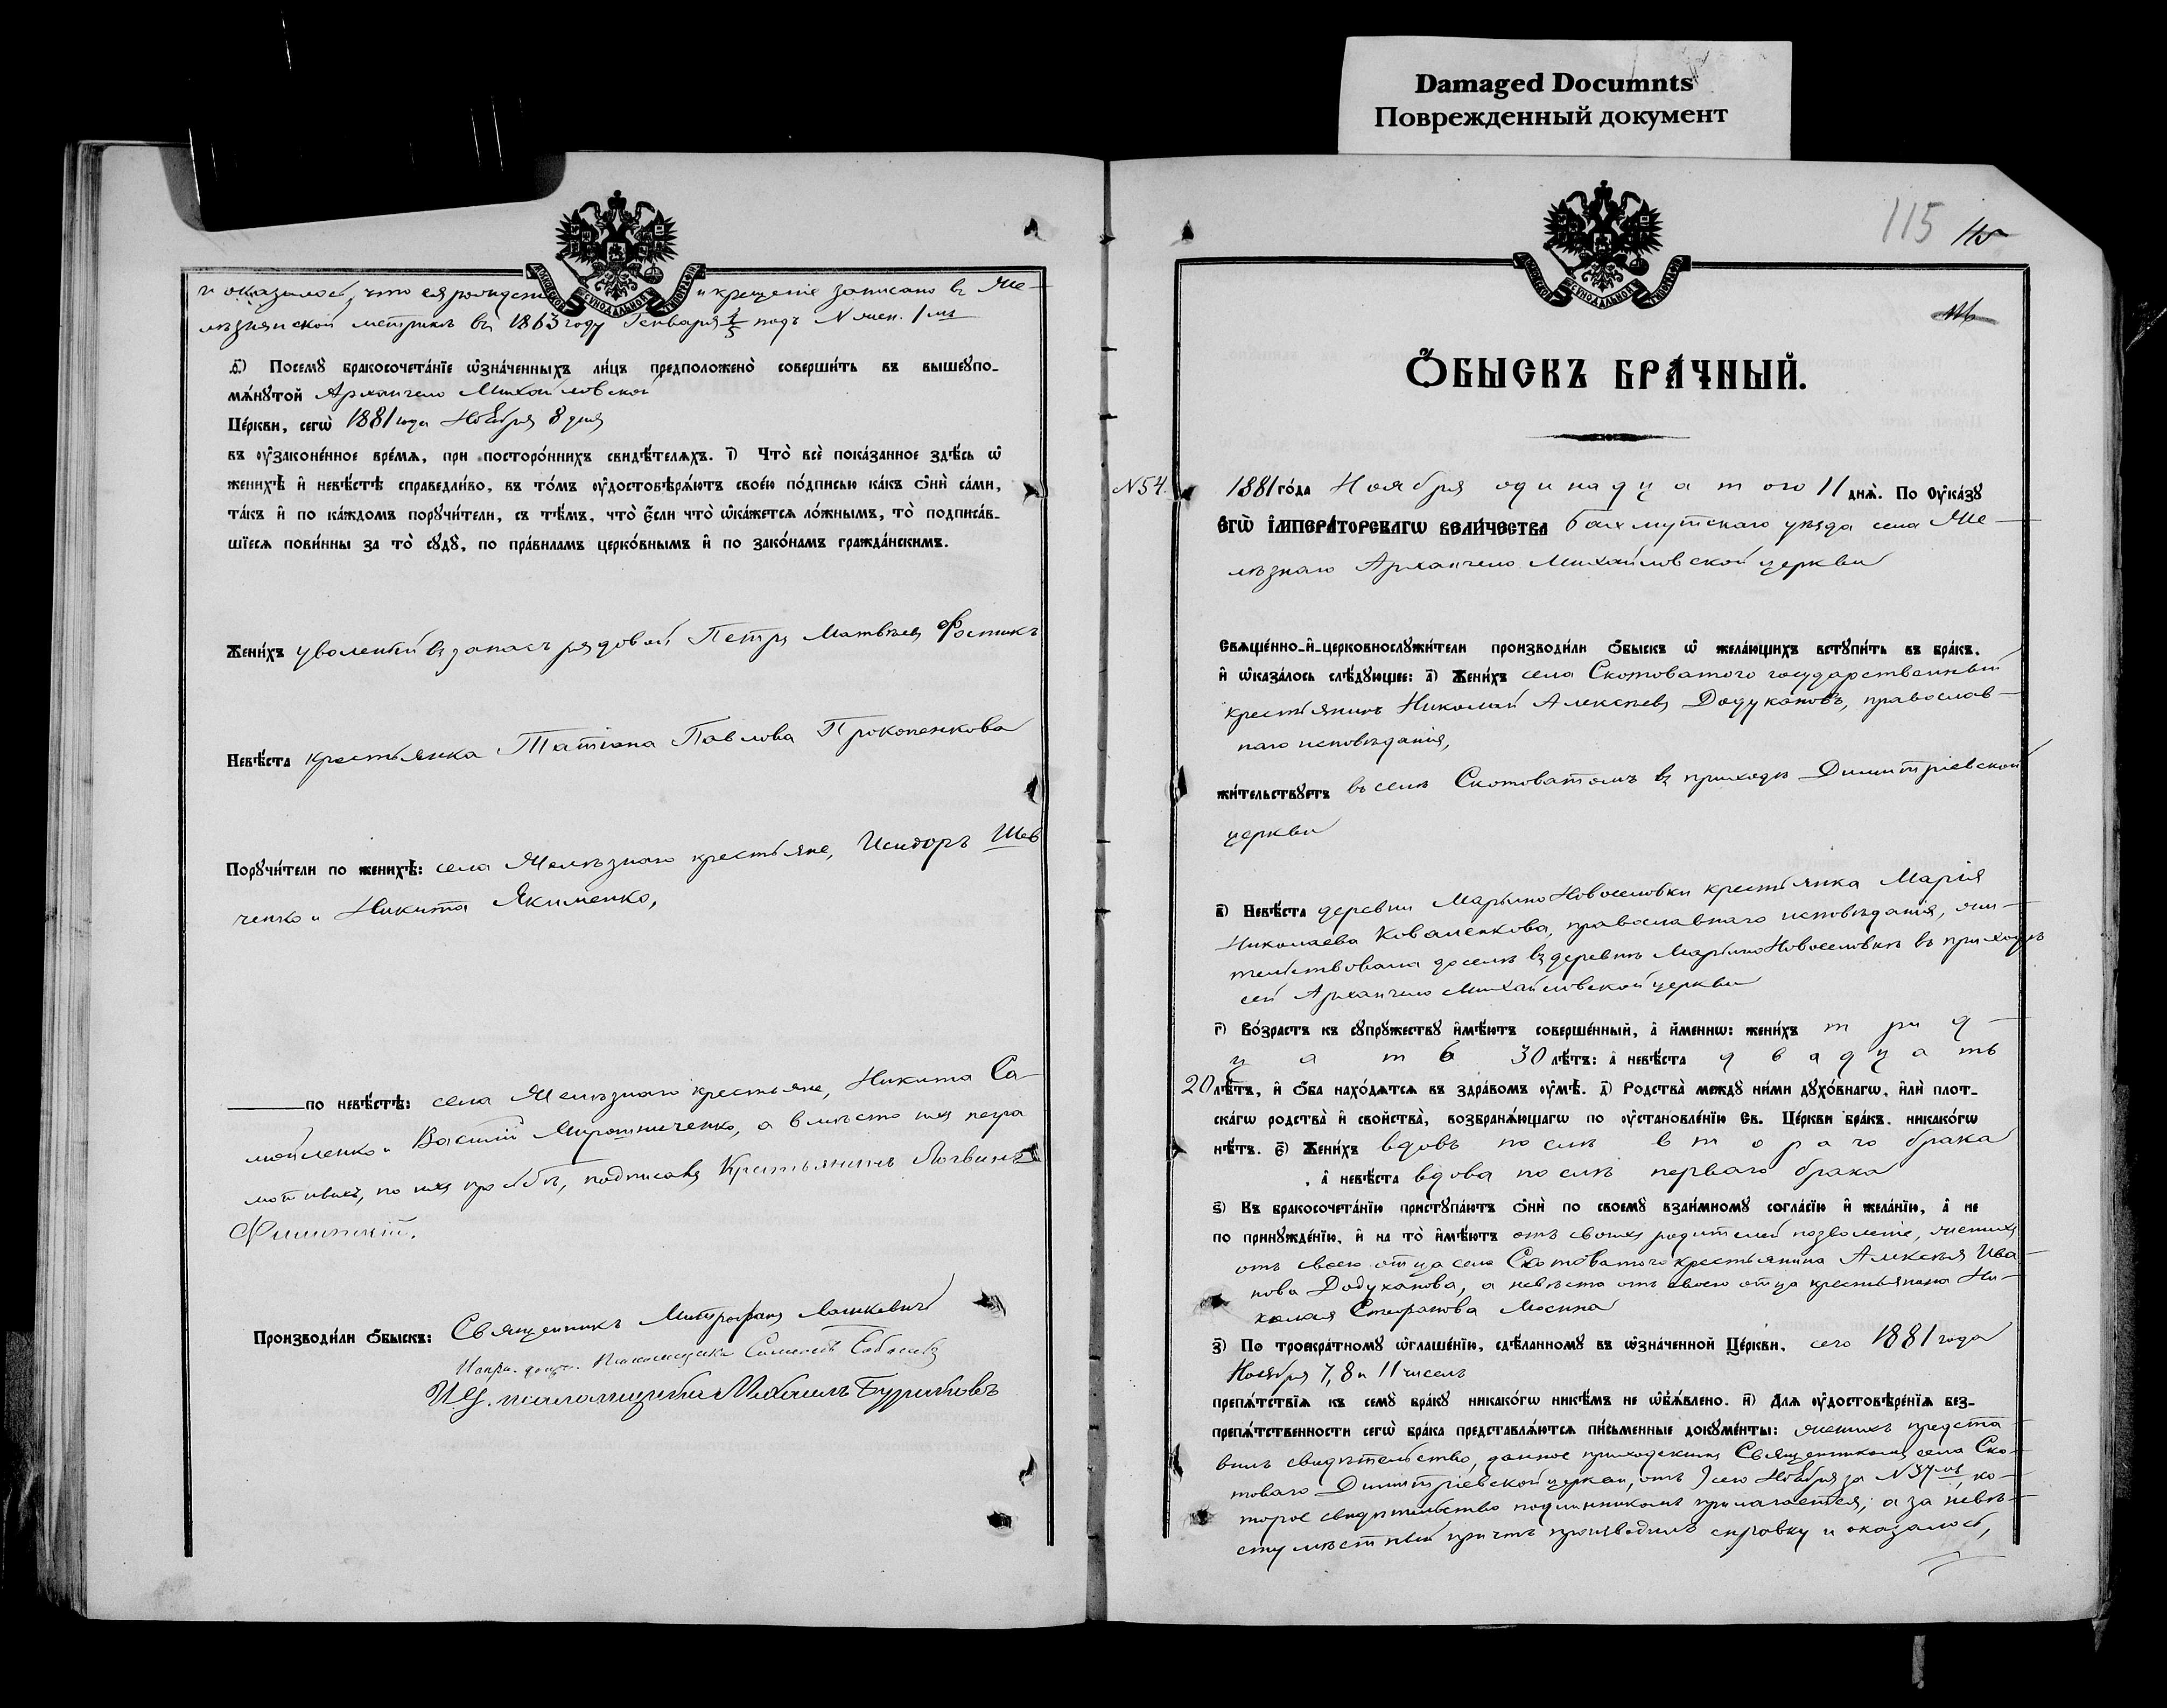 Damaged Documnts
Поврежденный документ
и оказалось, что ея рожденіе и крещеніе записано въ Же-
лѣзнянской метрикѣ въ 1863 году Генваря под N жен. 1мъ
МОСКОВСКОЙ СѴНОДАЛЬНОЙ ТИПОГРАФІИ
Посемꙋ бракосочета́нїе ѡ҆зна́ченныхъ ли́цъ предположено̀ соверши́ть въ вышеꙋпо-
мѧ́нꙋтой Архангело Михайловской
Це́ркви, сегѡ̀ 1881 года Ноября 8 дня
въ ᲂу҆законе́нное вре́мѧ, при посторо́ннихъ свидѣ́телѧхъ. і҃) Что̀ всѐ пока́занное здѣ́сь ѡ҆
женихѣ̀ и҆ невѣ́стѣ справедли́во, въ то́мъ ᲂу҆достовѣрѧ́ютъ свое́ю по́дписью ка́къ ѻ҆нѝ са́ми,
та́къ и҆ по ка́ждомъ порꙋчи́тели, съ тѣ́мъ, что̀ є҆́сли что̀ ѡ҆ка́жетсѧ ло́жнымъ, то̀ подписа́в-
шїесѧ пови́нны за то̀ сꙋдꙋ̀, по пра́виламъ церко́внымъ и҆ по зако́намъ гражда́нскимъ.
Жени́хъ уволеный въ запасъ рядовой Петръ Матвѣевъ Фостикъ
Невѣ́ста крестьянка Татіана Павлова Прокопенкова
Порꙋчи́тели по женихѣ̀: села Желѣзнаго крестьяне, Исидоръ Шев
ченко и Никита Якименко,
по невѣ́стѣ: села Желѣзнаго крестьяне, Никита Са-
мойленко и Василій Мирошниченко, а вмѣсто ихъ негра
мотныхъ, по ихъ прозьбѣ, подписался Крестьянинъ Логвинъ
Производи́ли ѻ҆́быскъ: Священникъ Митрофанъ Лашкевичъ
И.д. псаломщика Михаилъ
115
МОСКОВСКОЙ СѴНОДАЛЬНОЙ ТИПОГРАФІИ
Ѻ҆́БЫСКЪ БРА́ЧНЫЙ.
N 54. 1881 го́да Ноября одинадцатого 11 днѧ̀. По Оу҆ка́зꙋ
Є҆гѡ̀ І҆мпера́торскагѡ вели́чества Бахмутскаго уѣзда села Же-
лѣзнаго Архангело Михайловской церкви
Свѧще́нно-и҆-церковнослꙋжи́тели производи́ли ѻ҆́быскъ ѡ҆ жела́ющихъ встꙋпи́ть въ бра́къ.
и҆ ѡ҆каза́лось слѣ́дꙋющее: а҃) Жени́хъ села Скотоватого государственный
крестьянинъ Николай Алексѣевъ Додукаловъ, православ-
наго исповѣданія,
жи́тельствꙋетъ въ селѣ Скотоватомъ въ приходѣ Димитріевской
церкви
в҃) Невѣ́ста деревни Марьино Новоселовки крестьянка Марія
Николаева Коваленкова, православнаго исповѣданія, жи-
тельствовала доселѣ въ деревнѣ Марьино Новоселовкѣ въ приходѣ
сей Архангело Михайловской церкви
г҃) Во́зрастъ къ сꙋпрꙋ́жествꙋ и҆мѣ́ютъ соверше́нный, а҆ и҆́меннѡ: жени́хъ трид-
цать 30 лѣ́тъ: а҆ невѣ́ста двадцать
20 лѣ́тъ, и҆ ѻ҆́ба нахо́дѧтсѧ въ здра́вомъ ᲂу҆мѣ̀. д҃) Родства̀ междꙋ̀ ни́ми дꙋхо́внагѡ, и҆лѝ плот-
ска́гѡ родства̀ и҆ сво́йства̀, возбранѧ́ющагѡ по ᲂу҆становле́нїю Св. Це́ркви бра́къ. никако́гѡ
нѣ́тъ. є҃) Жени́хъ вдовъ послѣ второго брака
, а҆ невѣ́ста вдова послѣ перваго брака
ѕ҃) Къ бракосочета́нїю пристꙋпа́ютъ ѻ҆нѝ по своемꙋ̀ взаи́мномꙋ согла́сїю и҆ жела́нїю, а҆ не
по принꙋжде́нїю, и҆ на то̀ и҆мѣ́ютъ отъ своихъ родителей позволеніе, женихъ
отъ своего отца села Скотоватого крестьянина Алексѣя Ива-
нова Додукалова, а невѣста отъ своего отца крестьянина Ни-
колая Стефанова Мосина
з҃) По троекра́тномꙋ ѡ҆глаше́нїю, сдѣ́ланномꙋ въ ѡ҆зна́ченной Це́ркви, сего 1881 года
Ноября 7, 8 и 11 числъ
препѧ́тствїѧ къ семꙋ̀ бра́кꙋ никако́гѡ никѣ́мъ не ѡ҆б̾ѧ́влено. и҃) Длѧ̀ ᲂу҆достовѣре́нїѧ без-
препѧ́тственности сегѡ̀ бра́ка представлѧ́ютсѧ пи́сьменные докꙋме́нты: женихъ предста
вилъ свидѣтельство, данное приходскимъ Священникомъ села Ско-
товаго Димитріевской церкви, отъ 9 сего Ноября за N 37мъ, ко-
торое свидѣтельство подлинникомъ прилагается; а за невѣ-
сту мѣстный причтъ производилъ справку и оказалось,